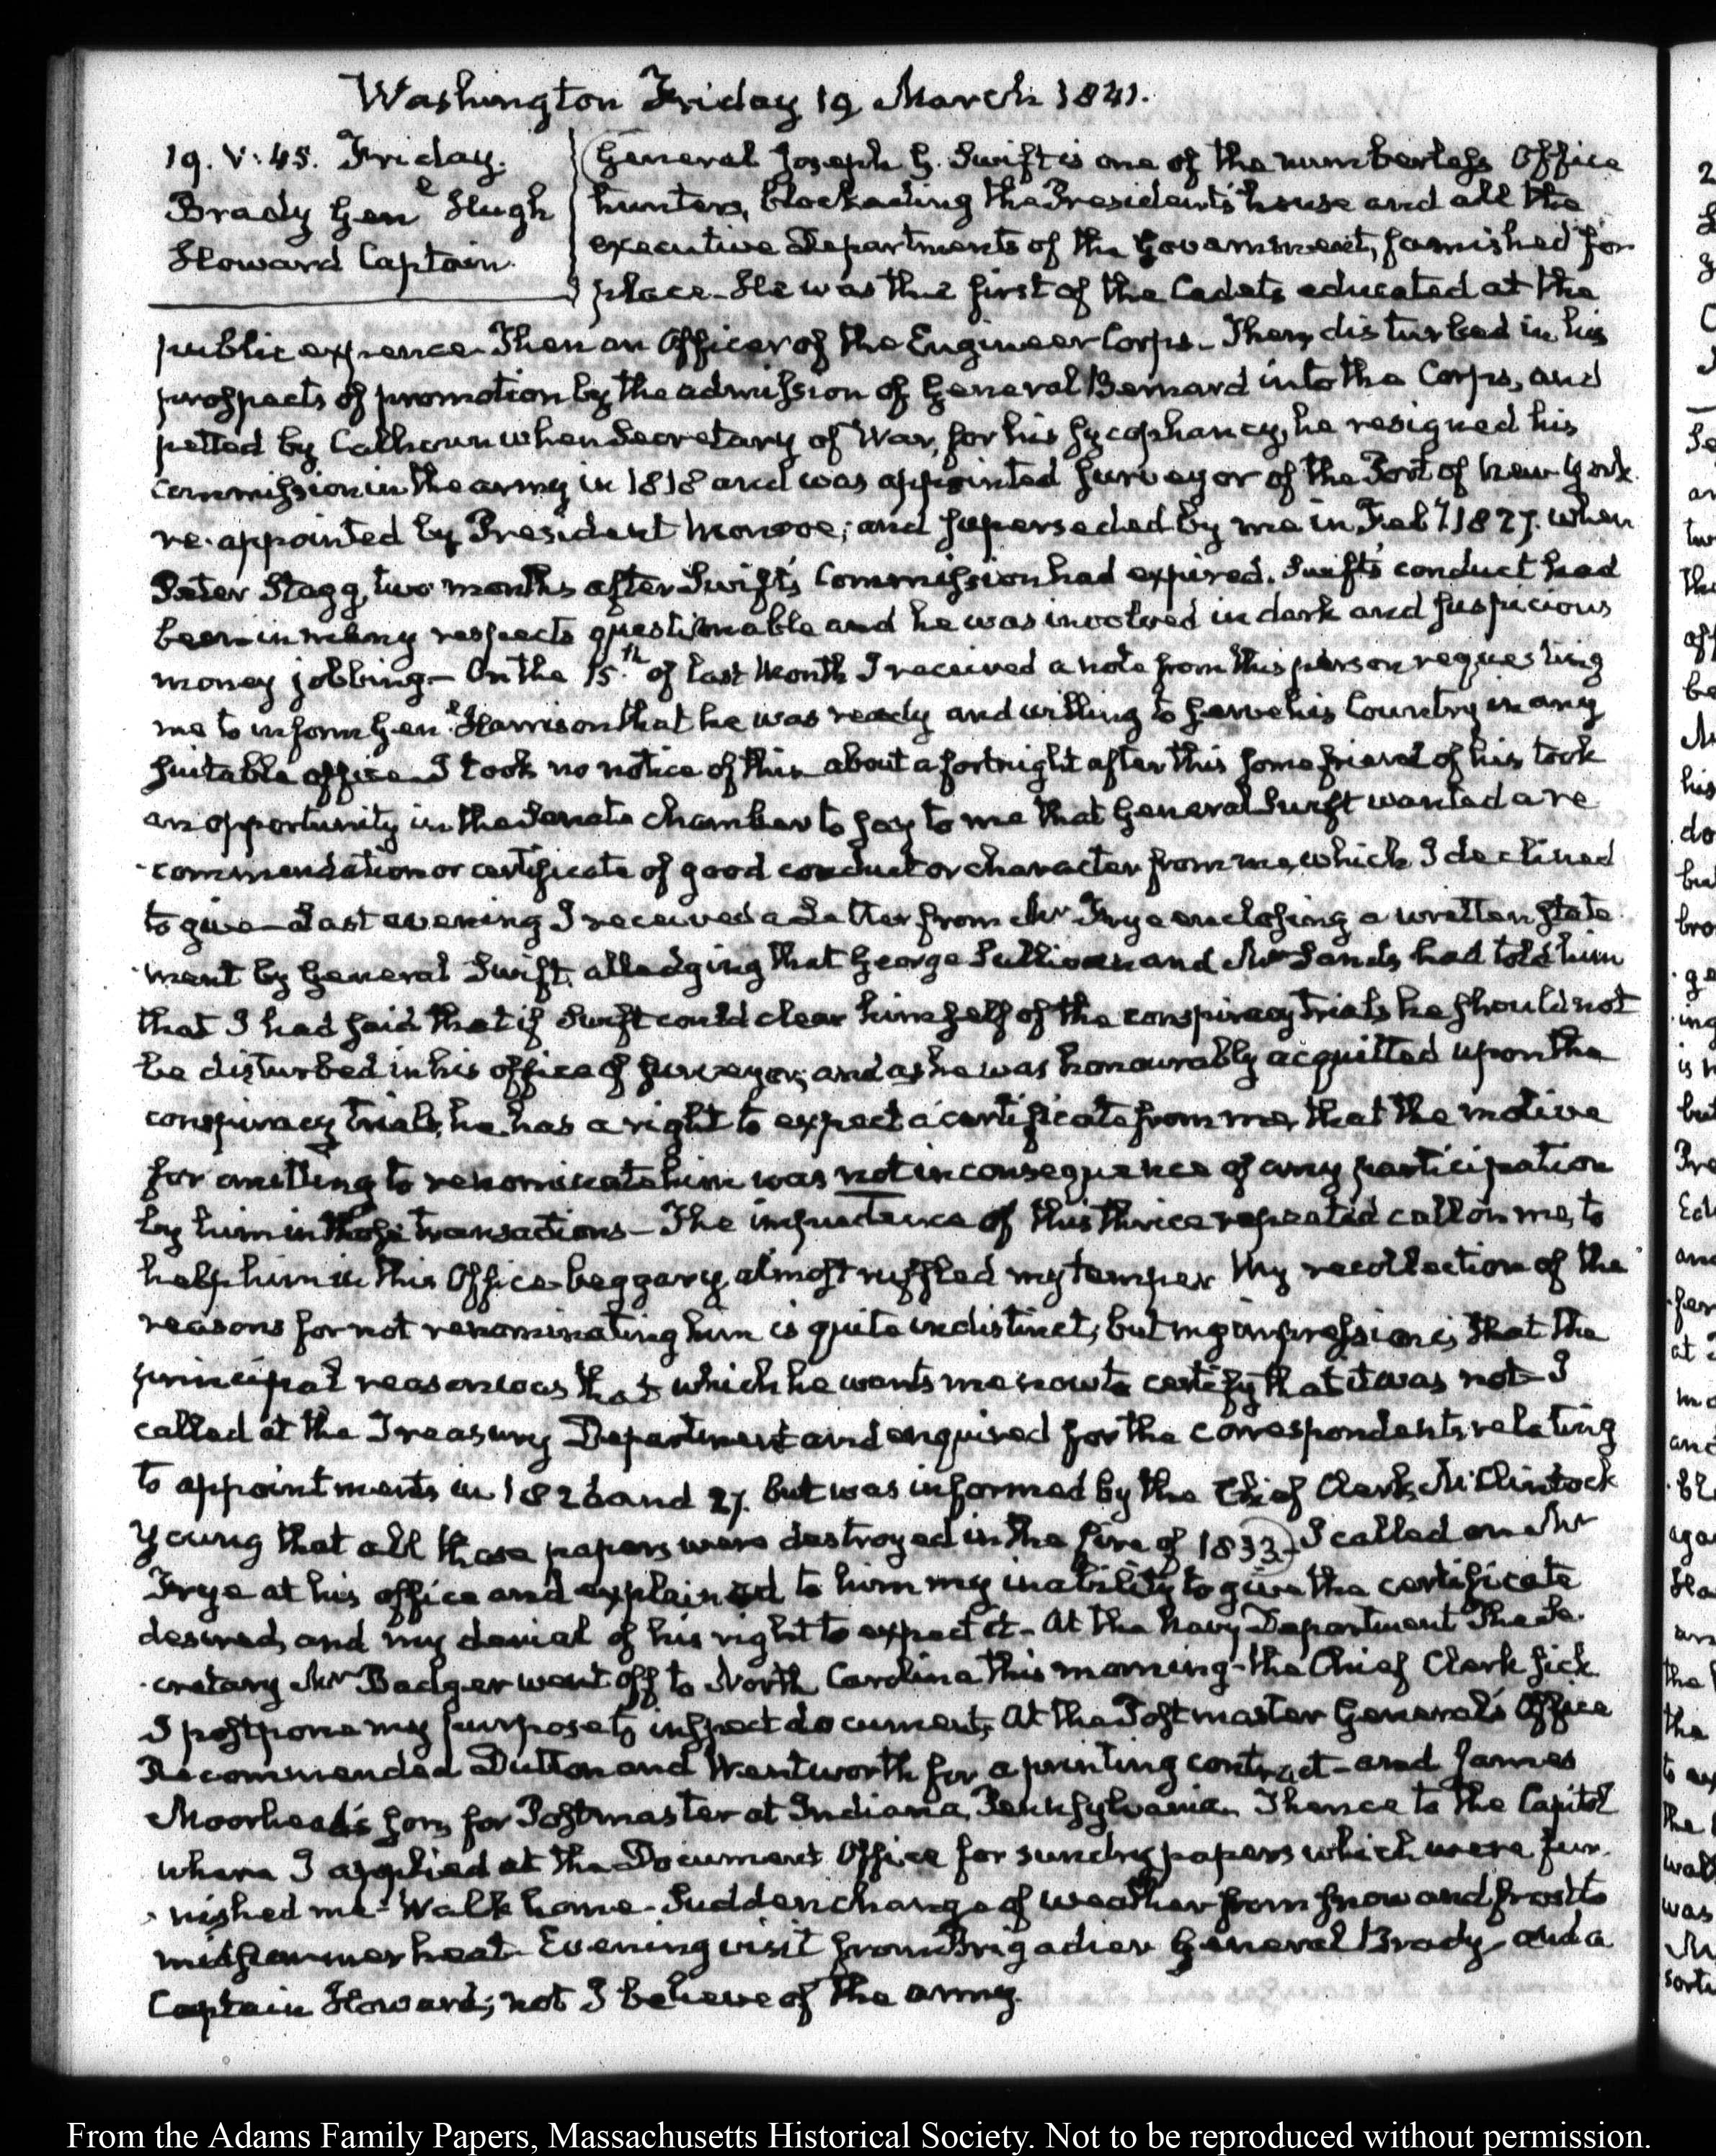 Washington Friday 19 March 1841.
19. V:45. Friday.
Brady Genl Hugh
Howard Captain.
General Joseph G. Swift is one of the numberless Office
hunters, blockading the President's house and all the
executive Departments of the Government, famished for
place. He was the first of the Cadets educated at the
public expence. Then an Officer of the Engineer Corps. Then, disturbed in his
prospects of promotion by the admission of General Bernard into the Corps, and
petted by Calhoun when Secretary of War, for his sycophancy, he resigned his
commission in the army in 1818 and was appointed Surveyor of the Port of New-York
re-appointed by President Monroe; and superseded by me in Feby 1827. when
Peter Stagg, two months after Swift's Commission had expired. Swift's conduct had
been in many respects questionable and he was involved in dark and suspicious
money jobbing— On the 15.th of last Month I received a note from this person requesting
me to inform Genl Harrison that he was ready and willing to serve his Country in any
suitable office. I took no notice of this. about a fortnight after this some friend of his took
an opportunity in the Senate chamber to say to me that General Swift wanted a re
-commendation or certificate of good conduct or character from me, which I declined
to give— Last evening I received a Letter from Mr Frye enclosing a written state
-ment by General Swift, alledging that George Sullivan and Mr Sands had told him
that I had said that if Swift could clear himself of the conspiracy trials he should not
be disturbed in his office of Surveyor; and as he was honourably acquitted upon the
conspiracy trials, he has a right to expect a certificate from me, that the motive
for omitting to renominate him was not in consequence of any participation
by him in those transactions— The impudence of this thrice repeated call on me, to
help him in this Office-beggary, almost ruffled my temper. My recollection of the
reasons for not renominating him is quite indistinct, but my impression is, that the
principal reason was that which he wants me now to certify that it was not— I
called at the Treasury Department and enquired for the correspondents, relating
to appointments in 1826 and 27. but was informed by the Chief Clerk, McClintock
Young that all those papers were destroyed in the fire of 1833— I called on Mr
Frye at his office and explained to him my inability to give the certificate
desired, and my denial of his right to expect it— At the Navy Department The Se-
-cretary Mr Badger went off to North Carolina this morning— the Chief Clerk sick
I postpone my purpose to inspect documents, At the Postmaster General's Office
Recommended Dutton and Wentworth for a printing contract— and James
Moorhead's son, for Postmaster at Indiana, Pennsylvania. Thence to the Capitol
where I applied at the Document Office for sundry papers which were fur-
-nished me— Walk home. Sudden change of weather from snow and frost to
midsummer heat. Evening visit from Brigadier General Brady and a
Captain Howard; not I believe of the army.
From the Adams Family Papers, Massachusetts Historical Society. Not to be reproduced without permission.